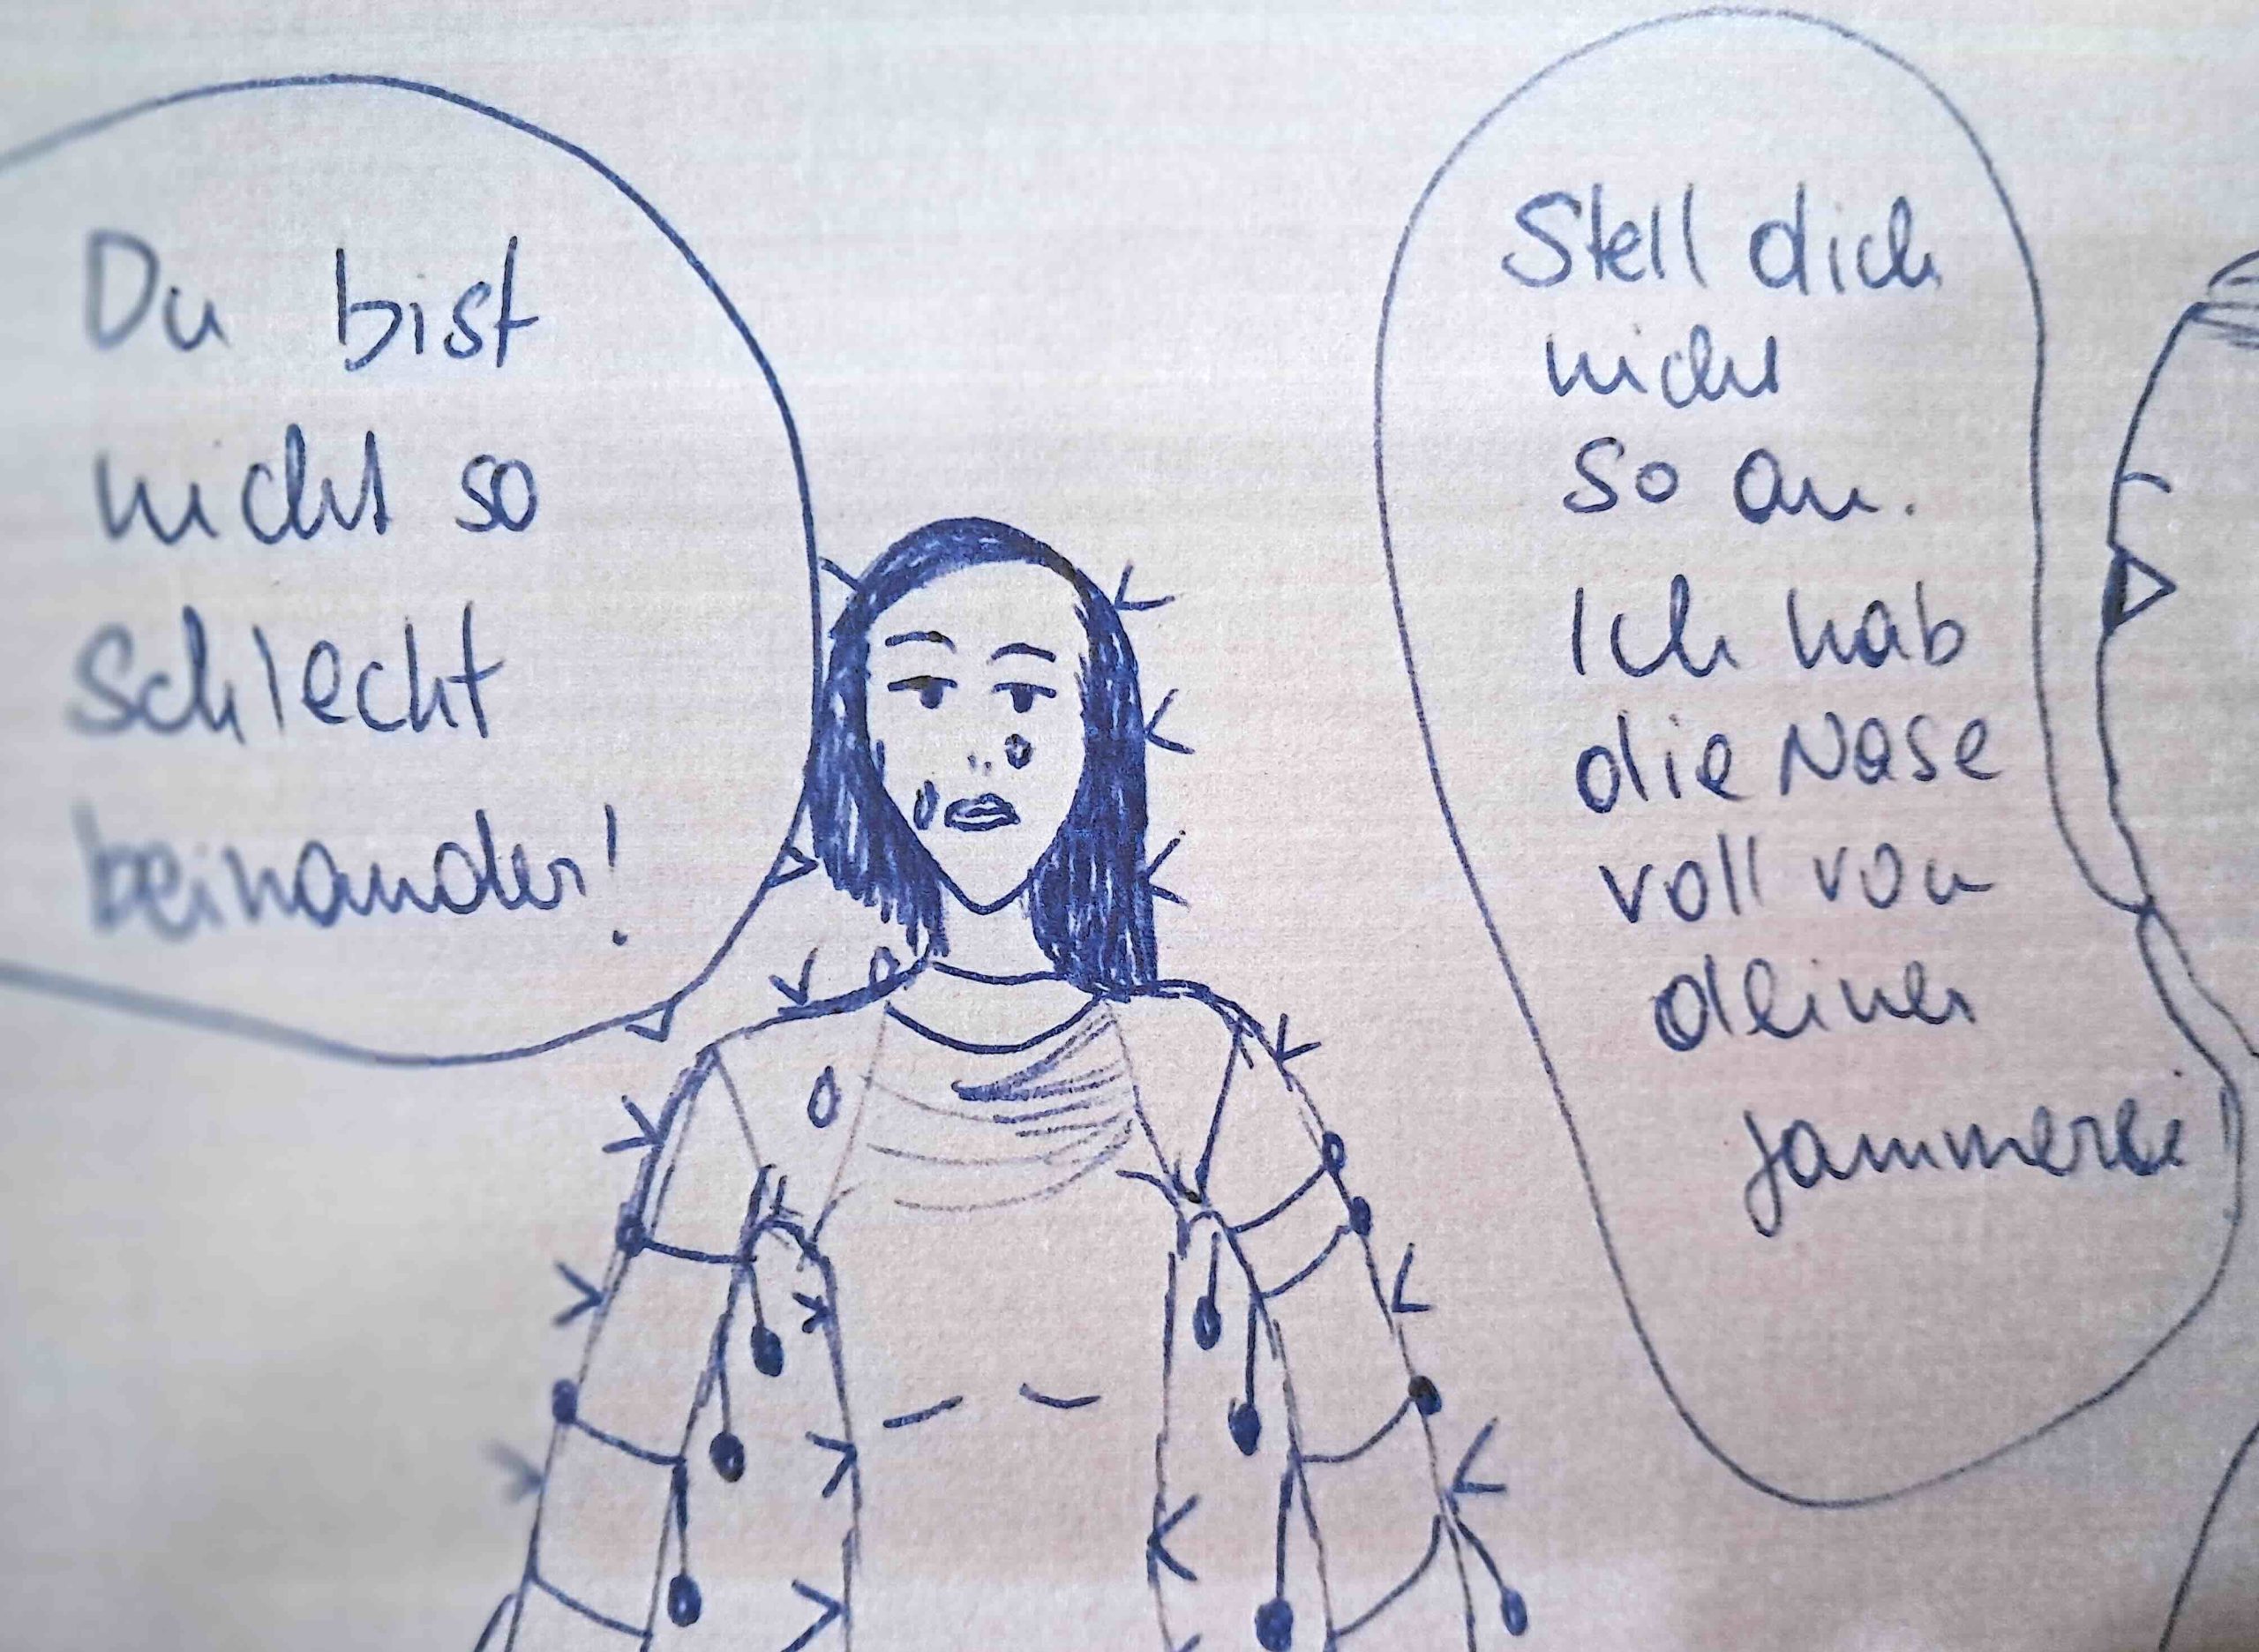 Du bist
nicht so
schlecht
beinander!
Stell dich
nicht
so an.
Ich hab
die Nase
voll von
deiner
Jammerei!